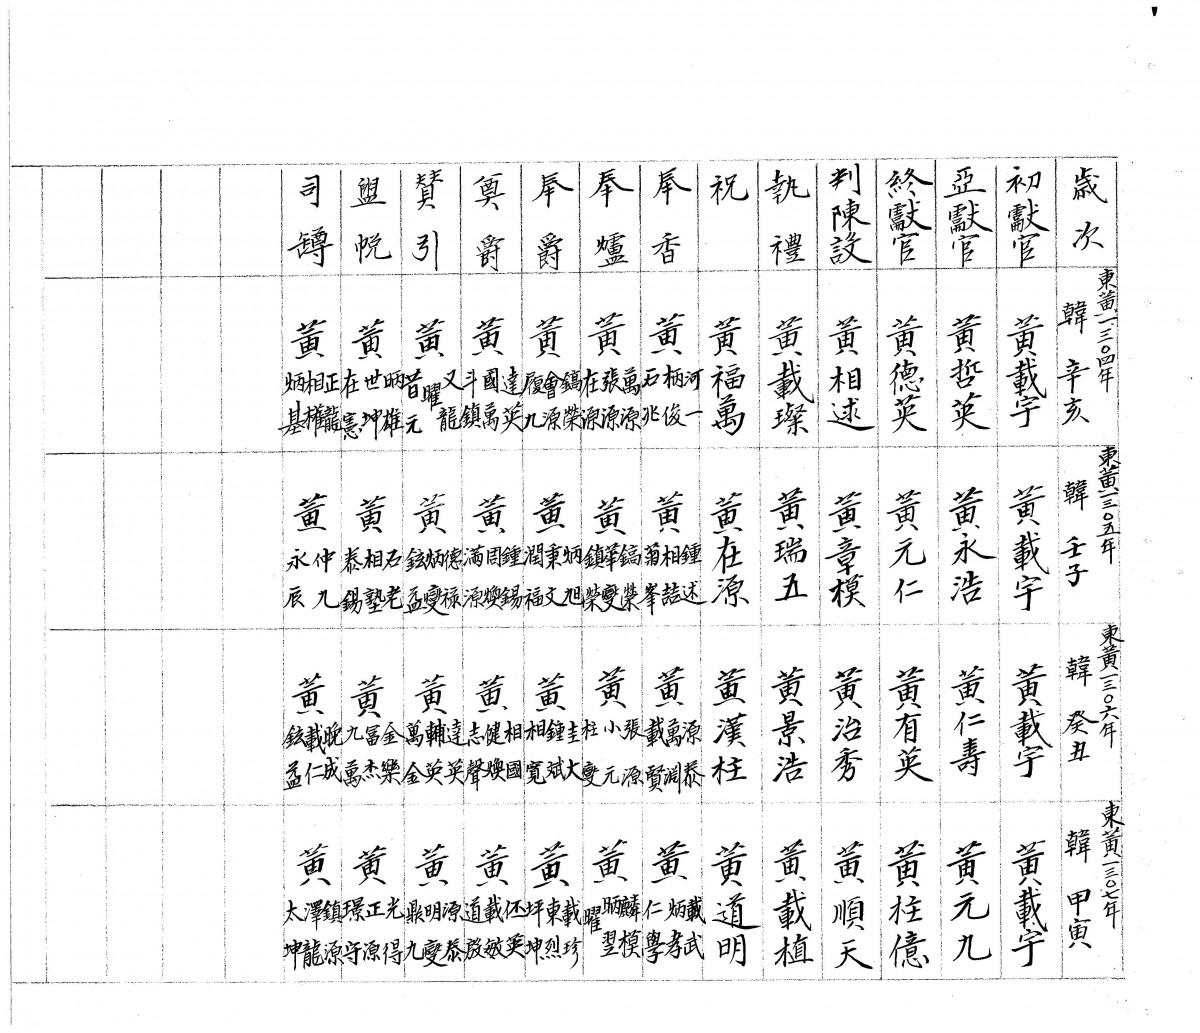 歲次
初獻官
亞獻官
終獻官
判陳設
執禮
祝
奉香
奉爐
奉爵
奠爵
贊引
盥帨
司罇
東黃一三0四年
韓 辛亥
黃載宇
黃哲英
黃德英
黃相述
黃載璨
黃福萬
黃 河一 柄俊 石兆
黃 萬源 張源 在源
黃 鎬榮 會源 履九
黃 達英 國萬 斗鎮
黃 又龍 曜 昔元
黃 炳雄 世坤 在憲
黃 正龍 相權 炳基
東黃一三0五年
韓 壬子
黃載宇
黃永浩
黃元仁
黃章模
黃瑞五
黃在源
黃 鍾述 相喆 菊峯
黃 鎬榮 華變 鎮榮
黃 炳旭 秉文 潤福
黃 鍾錫 周煥 滿源
黃 德禄 炳變 鉉益
黃 石老 相塾 泰錫
黃 仲九 永辰
東黃一三0六年
韓 癸丑
黃載宇
黃仁壽
黃有英
黃治秀
黃景浩
黃漢柱
黃 源泰 萬淵 載賢
黃 張源 小元 柱變
黃 圭大 鍾斌 相寬
黃 相國 健煥 志聲
黃 達英 輔英 萬金
黃 金樂 富杰 九萬
黃 晚成 載仁 鉉益
東黃一三0七年
韓 甲寅
黃載宇
黃元九
黃柱億
黃順天
黃載植
黃道明
黃 載武 炳孝 仁學
黃 麟模 炳翌 曜
黃 載珍 東烈 坪坤
黃 伾英 載敏 道殷
黃 源泰 明變 鼎九
黃 光得 正源 璟守
黃 鎮源 澤龍 太坤